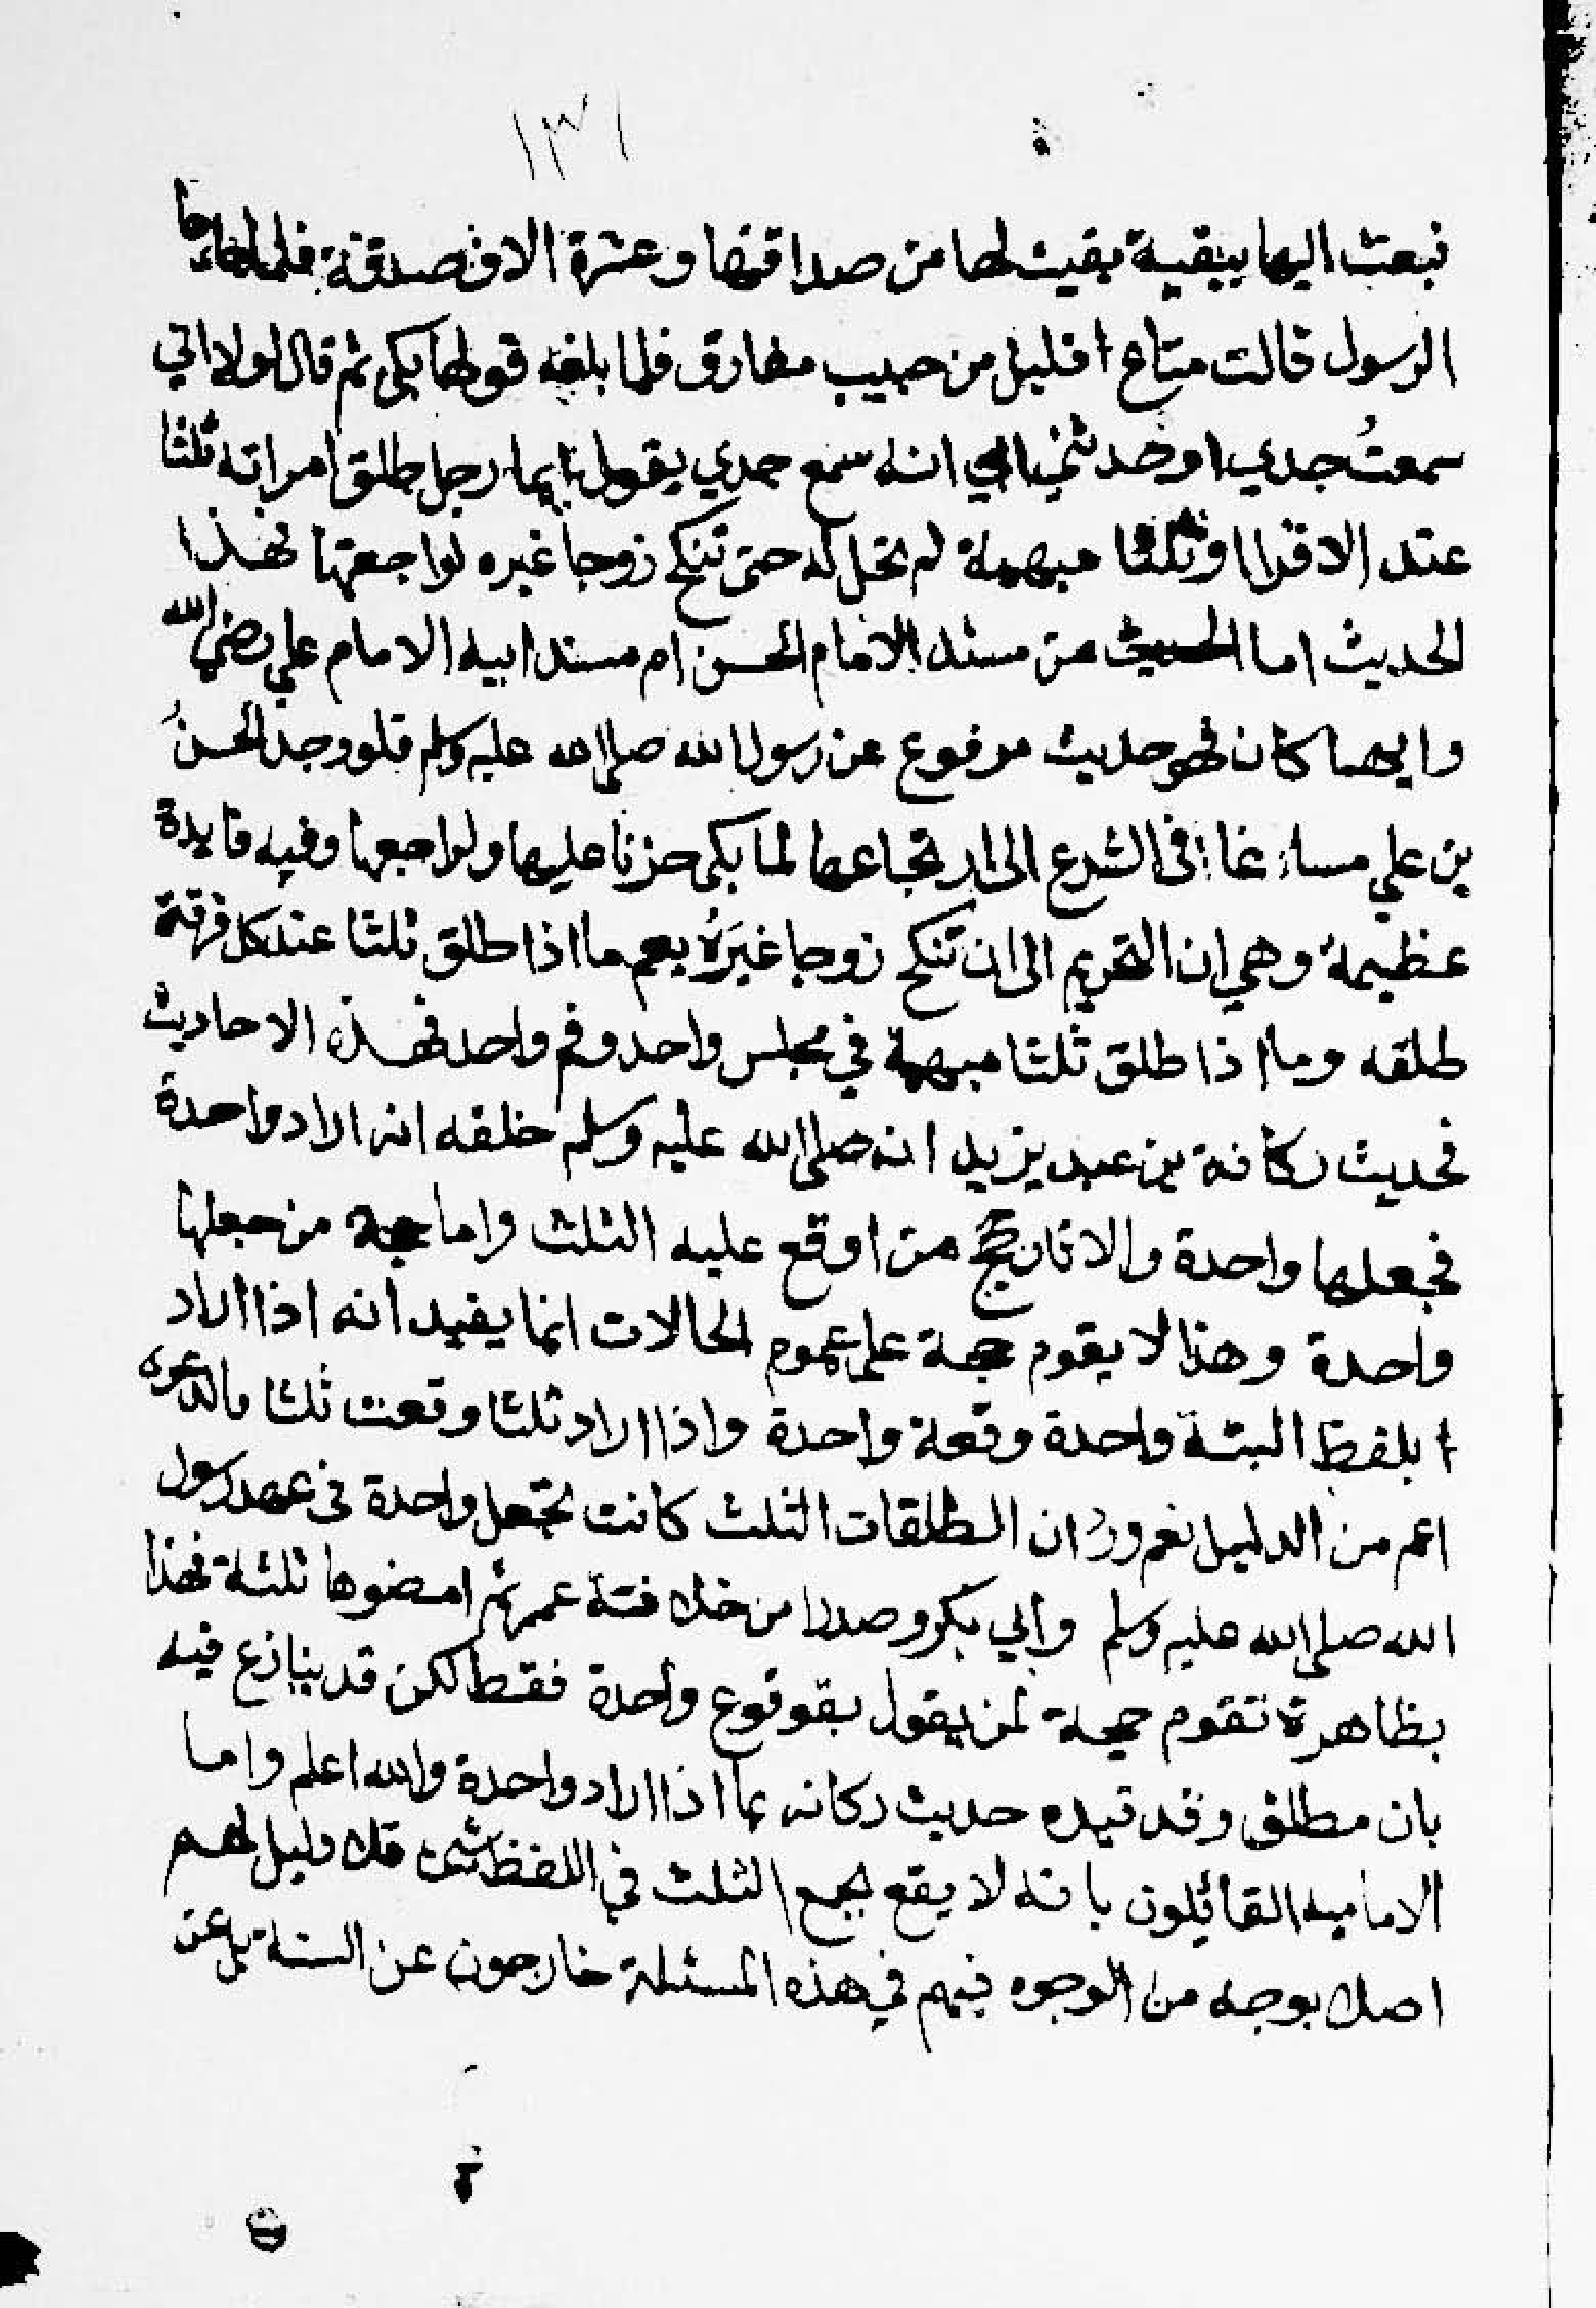 ١٣١
فبعث اليها ببقية بقيت لها من صداقها وعشرة الاف صدقة فلما جاءها
الرسول قالت متاع قليل من حبيب مفارق فلما بلغه قولها بكى ثم قال لولا اني
سمعتُ جدي او حدثني ابي انه سمع جدي يقول ايما رجل طلق امراته ثلثا
عند الاقراا وثلثا مبهمة لم تحل له حتى تنكح زوجا غيره لواجعتها فهذا
الحديث اما من مسند الامام الحسن ام مسند ابيه الامام علي رضي الله
وايهما كان فهو حديث مرفوع عن رسول الله صلى الله عليه وسلم فلو وجد الحسنُ
بن علي مساغا في الشرع الى ارتجاعها لما بكى حزنا عليها ولراجعها وفيه فايدة
عظيمة وهي ان التحريم الى ان تنكح زوجا غيَرهُ يعم ما اذا طلق ثلثا عند كل فرقة
طلقه وما اذا طلق ثلثا مبهمة في مجلس واحد وفم واحد فهذه الاحاديث
فحديث ركانة بن عبد يزيد انه صلى الله عليه وسلم حلفه انه اراد واحدة
فجعلها واحدة والاثان حجج من اوقع عليه الثلث واما حجة من جعلها
واحدة وهذا لا يقوم حجة على عموم الحالات انما يفيد انه اذا اراد
بلفظ البتة واحدة وقعة واحدة واذا اراد ثلثا وقعت ثلثا فالدعوى
اعم من الدليل نعم ورد ان الطلقات الثلث كانت تجعل واحدة في عهد رسول
الله صلى الله عليه وسلم وأبي بكر وصدرا من خلافة عمر ثم امضوها ثلثة فهذا
بظاهرة تقوم حجة لمن يقول بقوقوع واحدة فقط لكن قد ينازع فيه
بان مطلق وقد قيده حديث ركانه بما اذا اراد واحدة والله اعلم واما
الاماميه القائلون بانه لا يقع بجمع الثلث في اللفظ شئ فلا دليل لهم
اصلا بوجه من الوجوه فهم في هذه المسئلة خارجون عن السنة بل عن